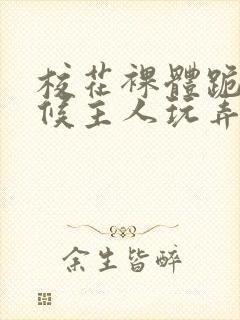 校花裸體跪
候主人玩弄
余生皆醉